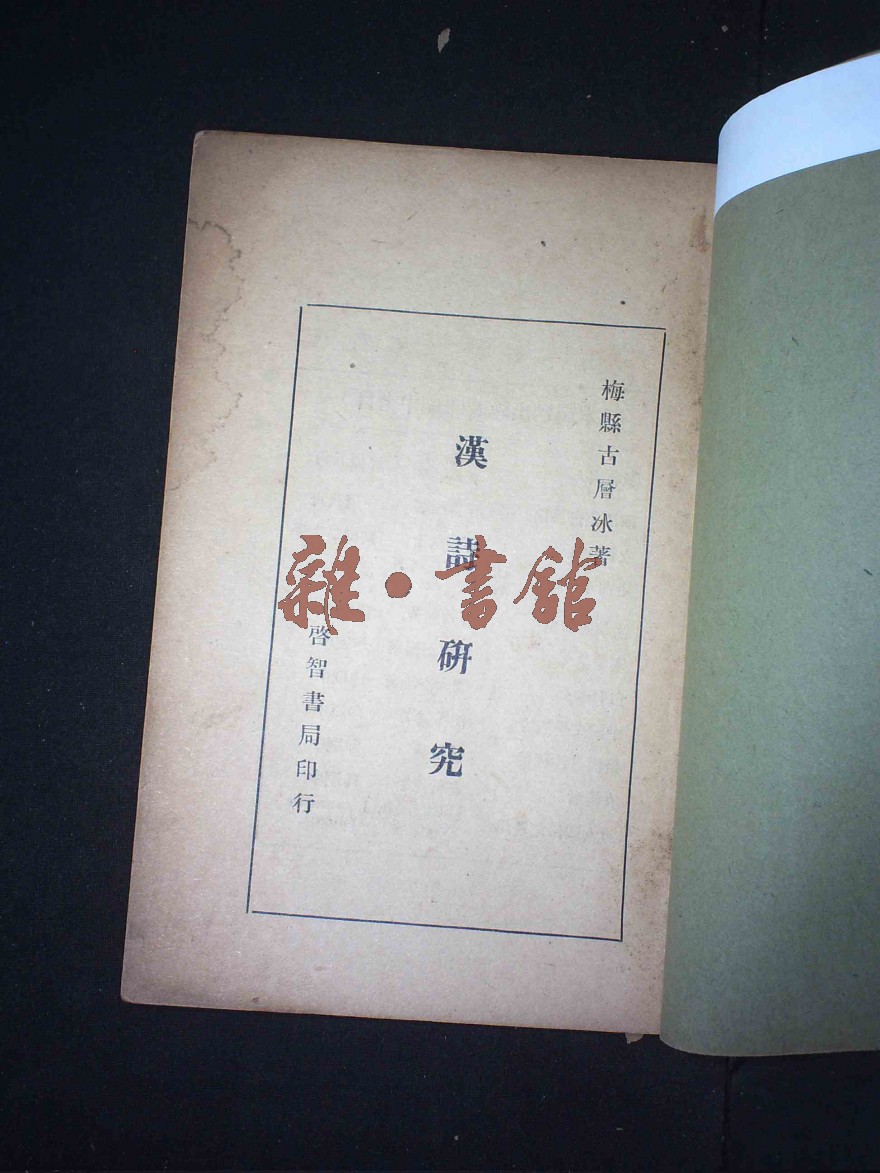 梅縣古層冰著
漢詩研究
啓智書局印行
雜·書館